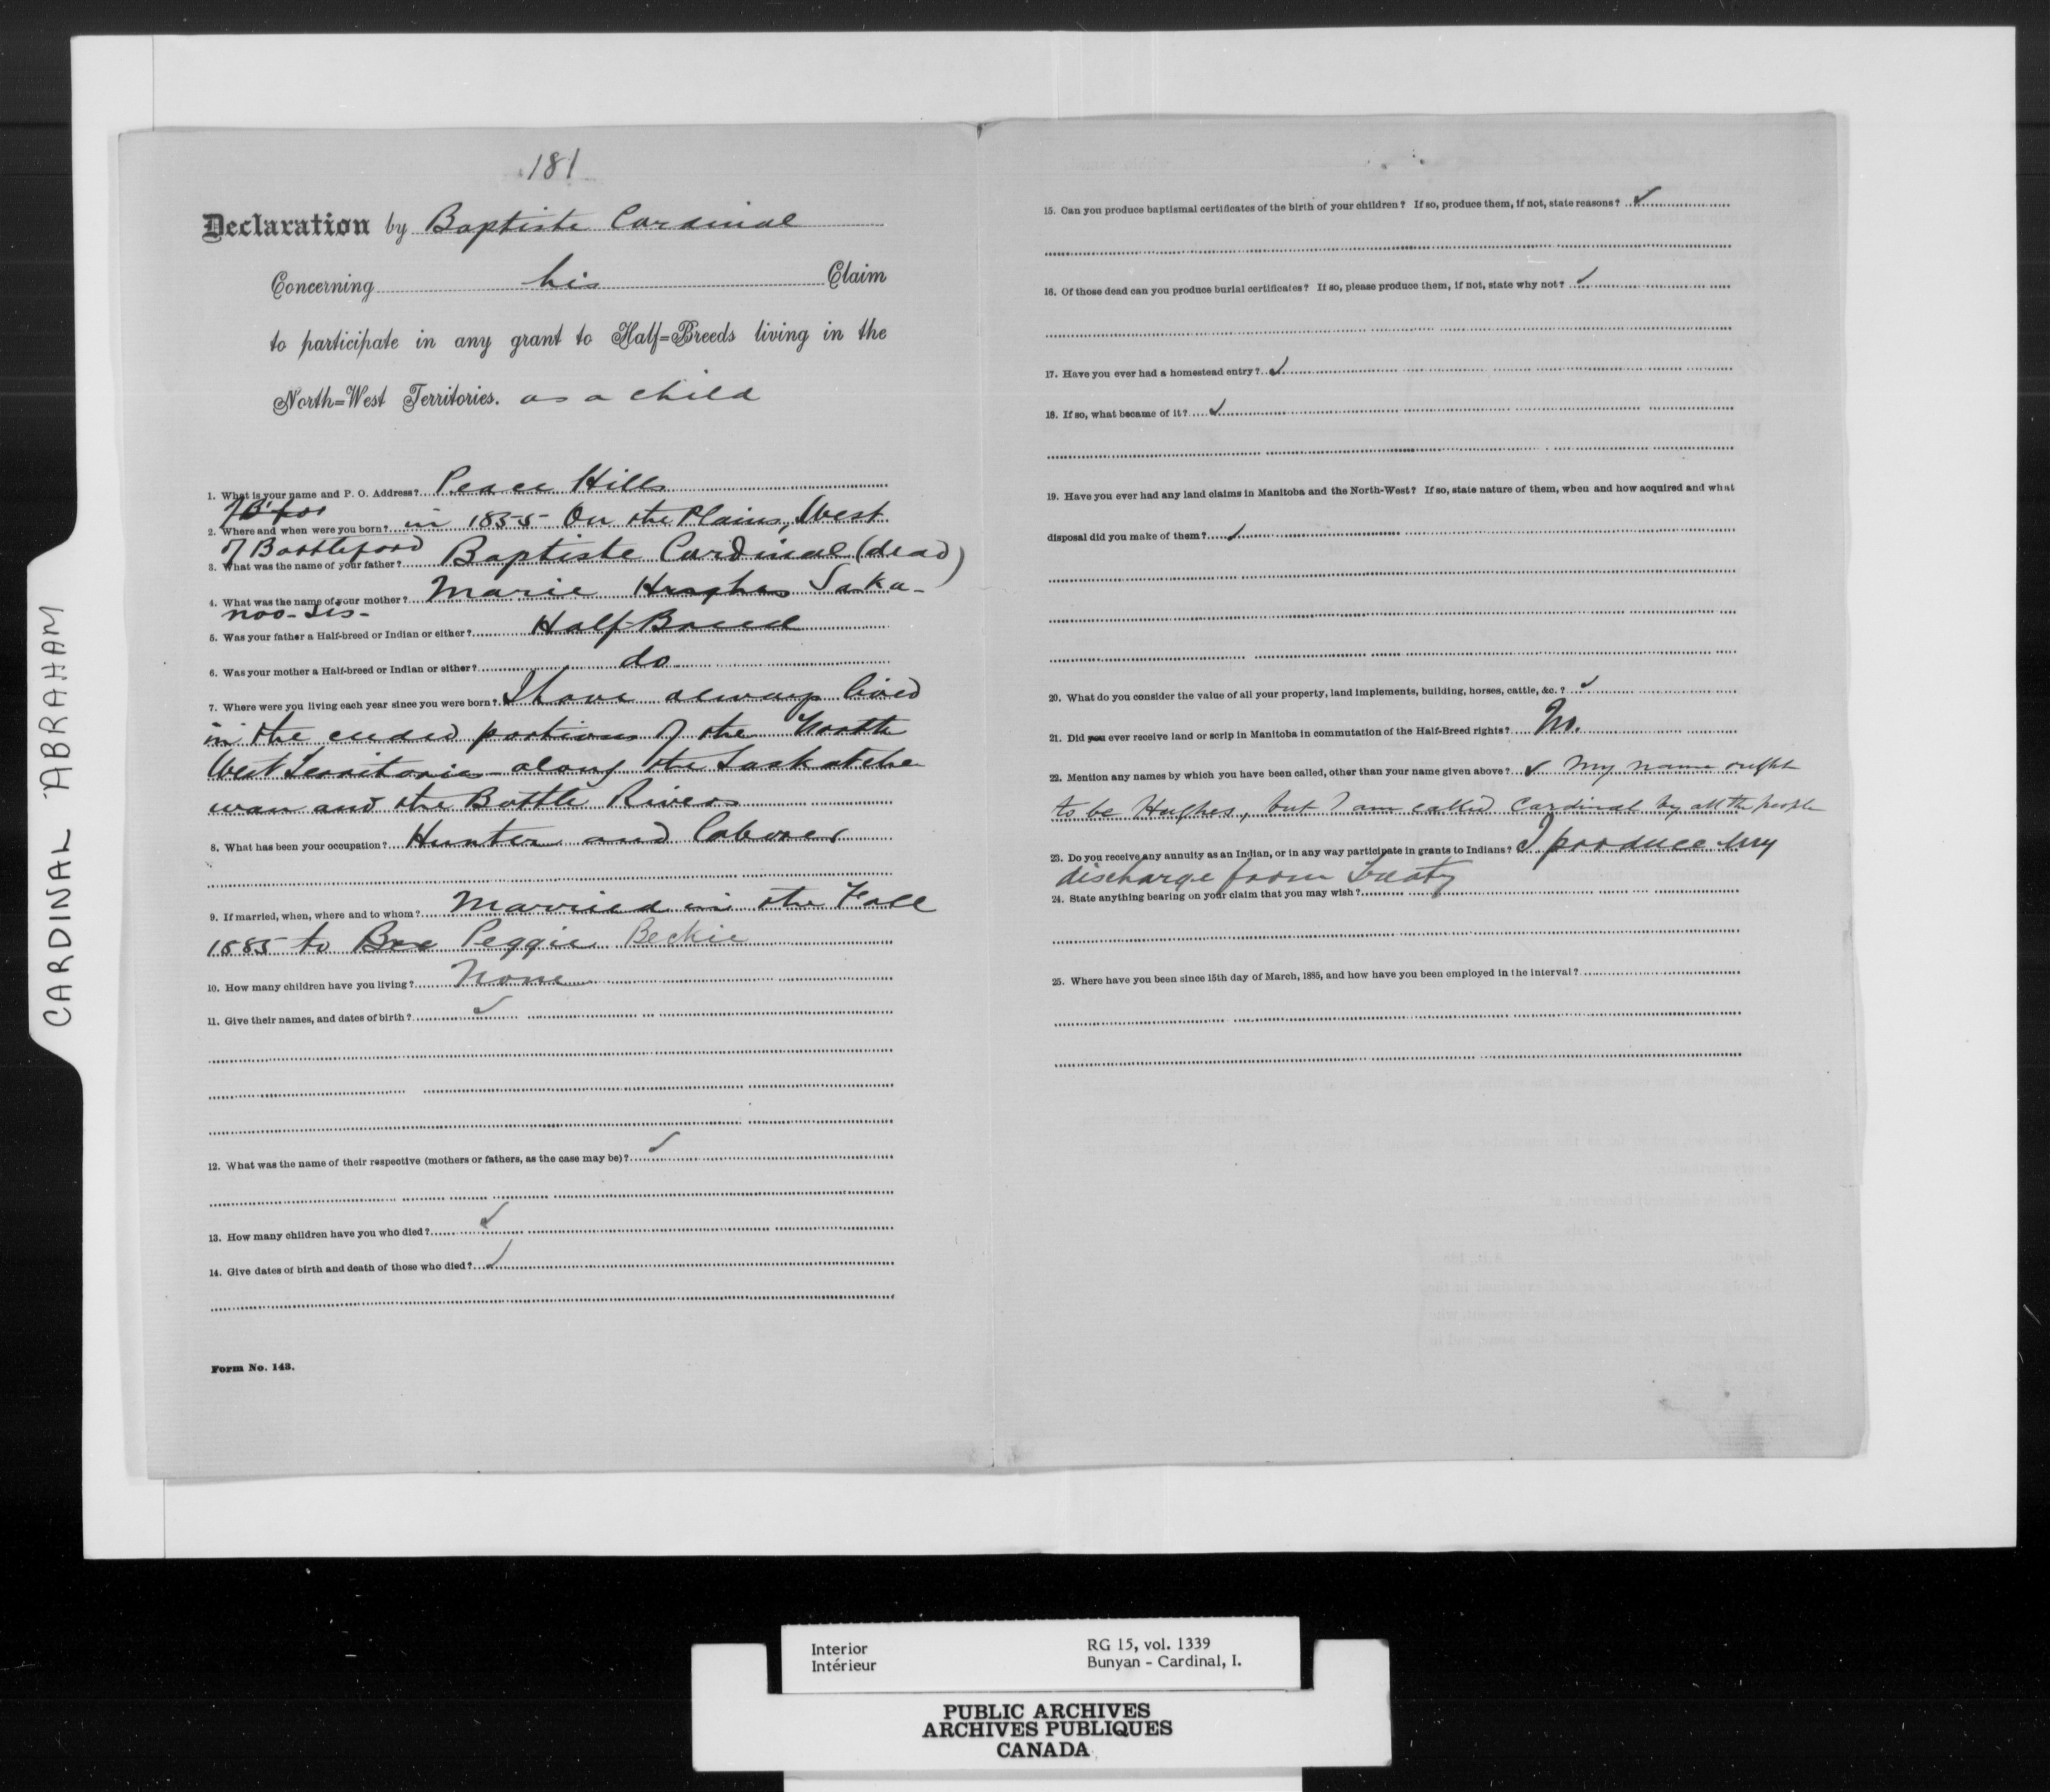 CARDINAL ABRAHAM
181
Declaration by Baptiste Cardinal
Concerning his Claim
to participate in any grant to Half=Breeds living in the
North=West Territories. as a child
1. What is your name and P. O. Address? Peace Hills
2. Where and when were you born? in 1855 On the Plains, West
of Battleford
3. What was the name of your father? Baptiste Cardinal (dead)
4. What was the name of your mother? Marie Hughes Saka-
noo-sis-
5. Was your father a Half-breed or Indian or either? Half-Breed
6. Was your mother a Half-breed or Indian or either? do
7. Where were you living each year since you were born? I have always lived
in the ceded portions of the North
West Territories along the Saskatche
wan and the Battle Rivers
8. What has been your occupation? Hunter and Laborer
9. If married, when, where and to whom? Married in the Fall
1885 to Peggie Beckie
10. How many children have you living? None
11. Give their names, and dates of birth? ✓
12. What was the name of their respective (mothers or fathers, as the case may be)? ✓
13. How many children have you who died? ✓
14. Give dates of birth and death of those who died? ✓
Form No. 143.
15. Can you produce baptismal certificates of the birth of your children? If so, produce them, if not, state reasons? ✓
16. Of those dead can you produce burial certificates? If so, please produce them, if not, state why not? ✓
17. Have you ever had a homestead entry? ✓
18. If so, what became of it? ✓
19. Have you ever had any land claims in Manitoba and the North-West? If so, state nature of them, when and how acquired and what
disposal did you make of them? ✓
20. What do you consider the value of all your property, land implements, building, horses, cattle, &c.? ✓
21. Did you ever receive land or scrip in Manitoba in commutation of the Half-Breed rights? No.
22. Mention any names by which you have been called, other than your name given above? ✓ My name ought
to be Hughes, but I am called Cardinal by all the people
23. Do you receive any annuity as an Indian, or in any way participate in grants to Indians? I produce my
discharge from Treaty
24. State anything bearing on your claim that you may wish?
25. Where have you been since 15th day of March, 1885, and how have you been employed in the interval?
Interior
Intérieur
RG 15, vol. 1339
Bunyan - Cardinal, I.
PUBLIC ARCHIVES
ARCHIVES PUBLIQUES
CANADA